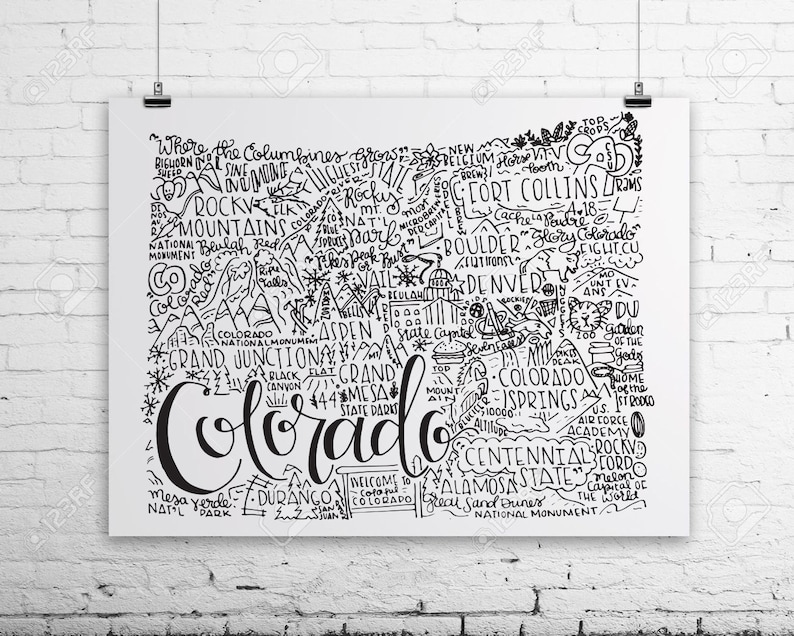 "Where the Columbines grow"
BIGHORN
SHEEP
HIGHEST STATE
COLORADO
RIVER
ROCKY
MOUNTAINS
ELK
BLUE
SPRUCES
Rocky
MT.
NAT'L
Park
MOST
MICROBREWERIES
PER CAPITA
NEW
BELGIUM
BREWS
Horse
tooth
TOP
CROPS
FORT COLLINS
RAMS
Cache la Poudre
A-18
Glory Colorado
FIGHT CU
BOULDER
flatirons
DINOSAUR
NATIONAL
MONUMENT
Beulah Red
Pikes Peak or Bust
Rifle
Falls
CO
"Colorado
Red"
VAIL
BEULAH
DENVER
ROCKIES
MOUNT EVANS
State Capitol
ZOO
DU
Garden
OF THE
Gods
COLORADO
NATIONAL MONUMENT
ASPEN
GRAND JUNCTION
BLACK
CANYON
FLAT
44°
GRAND
MESA
STATE PARKS
TOP
MOUNTAIN
Seven Falls
PIKES
PEAK
COLORADO
SPRINGS
HOME
of the
1ST RODEO
10000
ALTITUDE
U.S.
AIR FORCE
ACADEMY
Colorado
"CENTENNIAL
STATE"
ROCKY
FORD
Melon
Capital OF
THE World
Mesa Verde
NAT'L PARK
DURANGO
SAN
JUAN
WELCOME TO
Colorful
COLORADO
ALAMOSA
Great Sand Dunes
NATIONAL MONUMENT
123RF